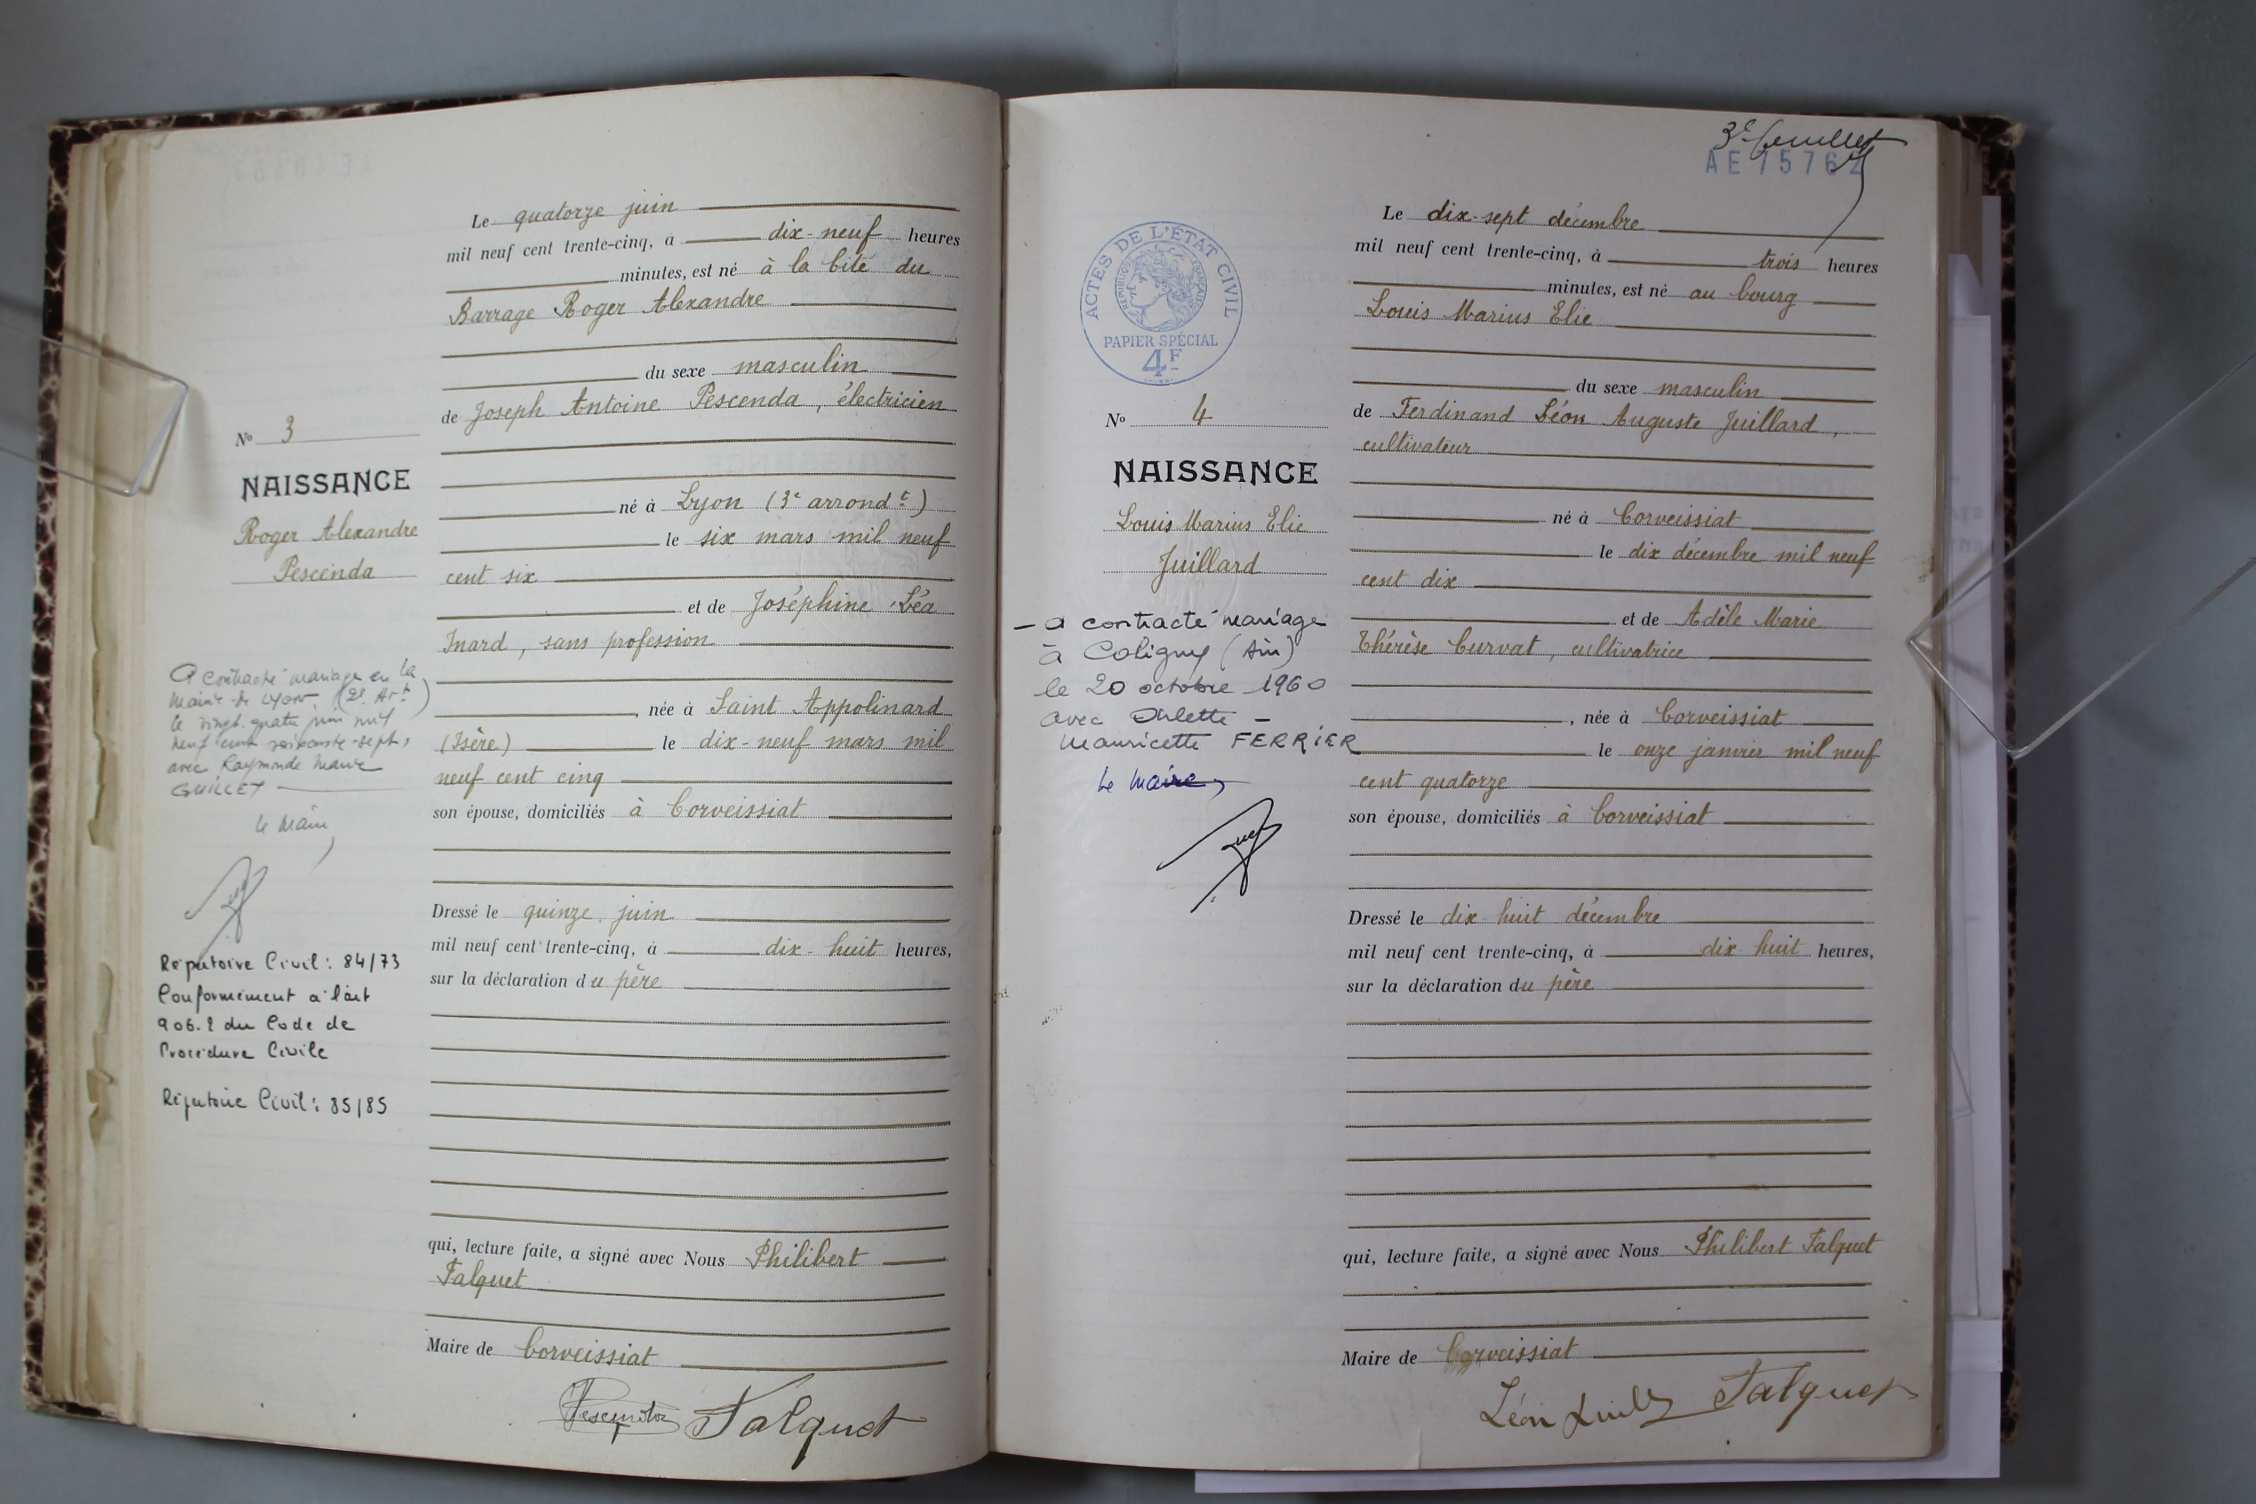 Le quatorze juin
mil neuf cent trente-cinq, à dix-neuf heures
minutes, est né à la Cité du
Barrage Roger Alexandre
du sexe masculin
de Joseph Antoine Pescenda, électricien
né à Lyon (3e arrondt)
le six mars mil neuf
cent six
et de Joséphine Léa
Inard, sans profession
née à Saint Appolinard
(Isère) le dix-neuf mars mil
neuf cent cinq
son épouse, domiciliés à Corveissiat
Dressé le quinze juin
mil neuf cent trente-cinq, à dix-huit heures,
sur la déclaration du père
qui, lecture faite, a signé avec Nous Philibert
Falquet
Maire de Corveissiat
Falquet
No 3
NAISSANCE
Roger Alexandre
Pescenda
A contracté mariage en la
Mairie de Lyon (2e Art)
le vingt quatre juin mil
neuf cent soixante-sept,
avec Raymonde Marie
GUILLET
Le Maire,
Répertoire Civil : 84/73
Conformément à l'art
906.2 du Code de
Procédure Civile
Répertoire Civil : 85/85
3e feuillet
AE 15762
ACTES DE L'ÉTAT CIVIL
RÉPUBLIQUE FRANÇAISE
PAPIER SPÉCIAL
4F
No 4
NAISSANCE
Louis Marius Elie
Juillard
– a contracté mariage
à Coligny (Ain)
le 20 octobre 1960
avec Arlette –
Mauricette FERRIER
Le Maire,
Le dix-sept décembre
mil neuf cent trente-cinq, à trois heures
minutes, est né au bourg
Louis Marius Elie
du sexe masculin
de Ferdinand Léon Auguste Juillard,
cultivateur
né à Corveissiat
le dix décembre mil neuf
cent dix
et de Adèle Marie
Thérèse Curvat, cultivatrice
, née à Corveissiat
le onze janvier mil neuf
cent quatorze
son épouse, domiciliés à Corveissiat
Dressé le dix-huit décembre
mil neuf cent trente-cinq, à dix huit heures,
sur la déclaration du père
qui, lecture faite, a signé avec Nous Philibert Falquet
Maire de Corveissiat
Léon Falquet